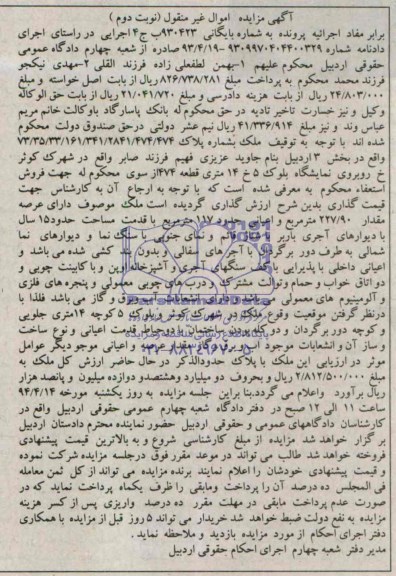 آگهی مزایده اموال غیر منقول (نوبت دوم)
برابر مفاد اجرائیه پرونده به شماره بایگانی ۹۳۰۴۲۳ب ج۴ اجرایی در راستای اجرای
دادنامه شماره ۹۳۰۹۹۷۰۴۰۴۴۰۰۳۲۹ -۹۳/۴/۱۹ صادره از شعبه چهارم دادگاه عمومی
حقوقی اردبیل محکوم علیهم ۱-بهمن لطفعلی زاده فرزند القلی ۲-مهدی نیکجو
فرزند محمد محکوم به پرداخت مبلغ ۸۲۶/۷۳۸/۲۸۱ ریال از بابت اصل خواسته و مبلغ
۲۴/۸۰۳/۰۰۰ ریال از بابت هزینه دادرسی و مبلغ ۲۱/۰۴۱/۷۲۰ ریال از بابت حق الوکاله
وکیل و نیز خسارت تاخیر تادیه در حق محکوم له بانک پاسارگاد باوکالت خانم مریم
عباس وند و نیز مبلغ ۴۱/۳۳۶/۹۱۴ ریال نیم عشر دولتی درحق صندوق دولت محکوم
شده اند با توجه به توقیف ملک بشماره پلاک ۷۳/۳۵/۳۳/۱۶۱/۳۴۱/۲۸۴۱/۴۷۴/۴۷۴
واقع در بخش ۳ اردبیل بنام جاوید عزیزی فهیم فرزند صابر واقع در شهرک کوثر
خ روبروی نمایشگاه بلوک ۵ خ ۱۴ متری قطعه ۴۷۴ از سوی محکوم له جهت فروش
استعفاء محکوم به معرفی شده است که با توجه به ارجاع آن به کارشناس جهت
قیمت گذاری بدین شرح ارزش گذاری گردیده است ملک موصوف دارای عرصه
مقدار ۲۲۷/۹۰ مترمربع و اعیانی حدود ۱۱۷ مترمربع با قدمت ساخت حدود۱۵ سال
با دیوارهای آجری باربر قائم و نمای جنوبی با سنگ نما و دیوارهای نما
شمالی به طرف دور برگردان با آجر های سفالی و بدون بند کشی شده می باشد و
اعیانی داخلی با پذیرایی سنگهای آجری و آشپزخانه اوپن و با کابینت چوبی و
دو اتاق خواب و حمام و توالت مشترک و درب های چوبی معمولی و پنجره های فلزی
و آلومینیوم های معمولی می باشد و دارای انشعابات آب و برق و گاز می باشد فلذا با
درنظر گرفتن موقعیت وقوع ملک در شهرک کوثر و بلوک ۵ کوچه ۱۴متری جلویی
و کوچه دور برگردان و در کله بودن ساختمان با قدمت اعیانی و نوع ساخت
و ساز آن و انشعابات موجود آب و برق و گاز مقدار عرصه و اعیانی موجود دیگر عوامل
موثر در ارزیابی این ملک با پلاک حدودالذکر در حال حاضر ارزش کل ملک به
مبلغ ۲/۸۱۲/۵۰۰/۰۰۰ ریال و بحروف دو میلیارد وهشتصدو دوازده میلیون و پانصد هزار
ریال برآورد واعلام می گردد.بنا براین جلسه مزایده به روز یکشنبه مورخه ۹۴/۴/۱۴
ساعت ۱۱ الی ۱۲ صبح در دفتر دادگاه شعبه چهارم عمومی حقوقی اردبیل واقع در
کارشناسان دادگاههای عمومی و حقوقی اردبیل حضور نماینده محترم دادستان اردبیل
برگزار خواهد شد مزایده از مبلغ کارشناسی شروع و به بالاترین قیمت پیشنهادی
فروخته خواهد شد طالب می تواند در موعد مقرر فوق درجلسه مزایده شرکت نموده
و قیمت پیشنهادی خودشان را اعلام نمایند برنده مزایده می تواند از کل ثمن معامله
فی المجلس ده درصد آن را پرداخت ومابقی را ظرف یکماه پرداخت نماید که در
صورت عدم پرداخت مابقی در مهلت مقرر ده درصد واریزی پس از کسر هزینه
مزایده به نفع دولت ضبط خواهد شد خریدار می تواند ۵ روز قبل از مزایده با همکاری
دفتر اجرای احکام از مورد مزایده بازدید و ملاحظه نماید .
مدیر دفتر شعبه چهارم اجرای احکام حقوقی اردبیل